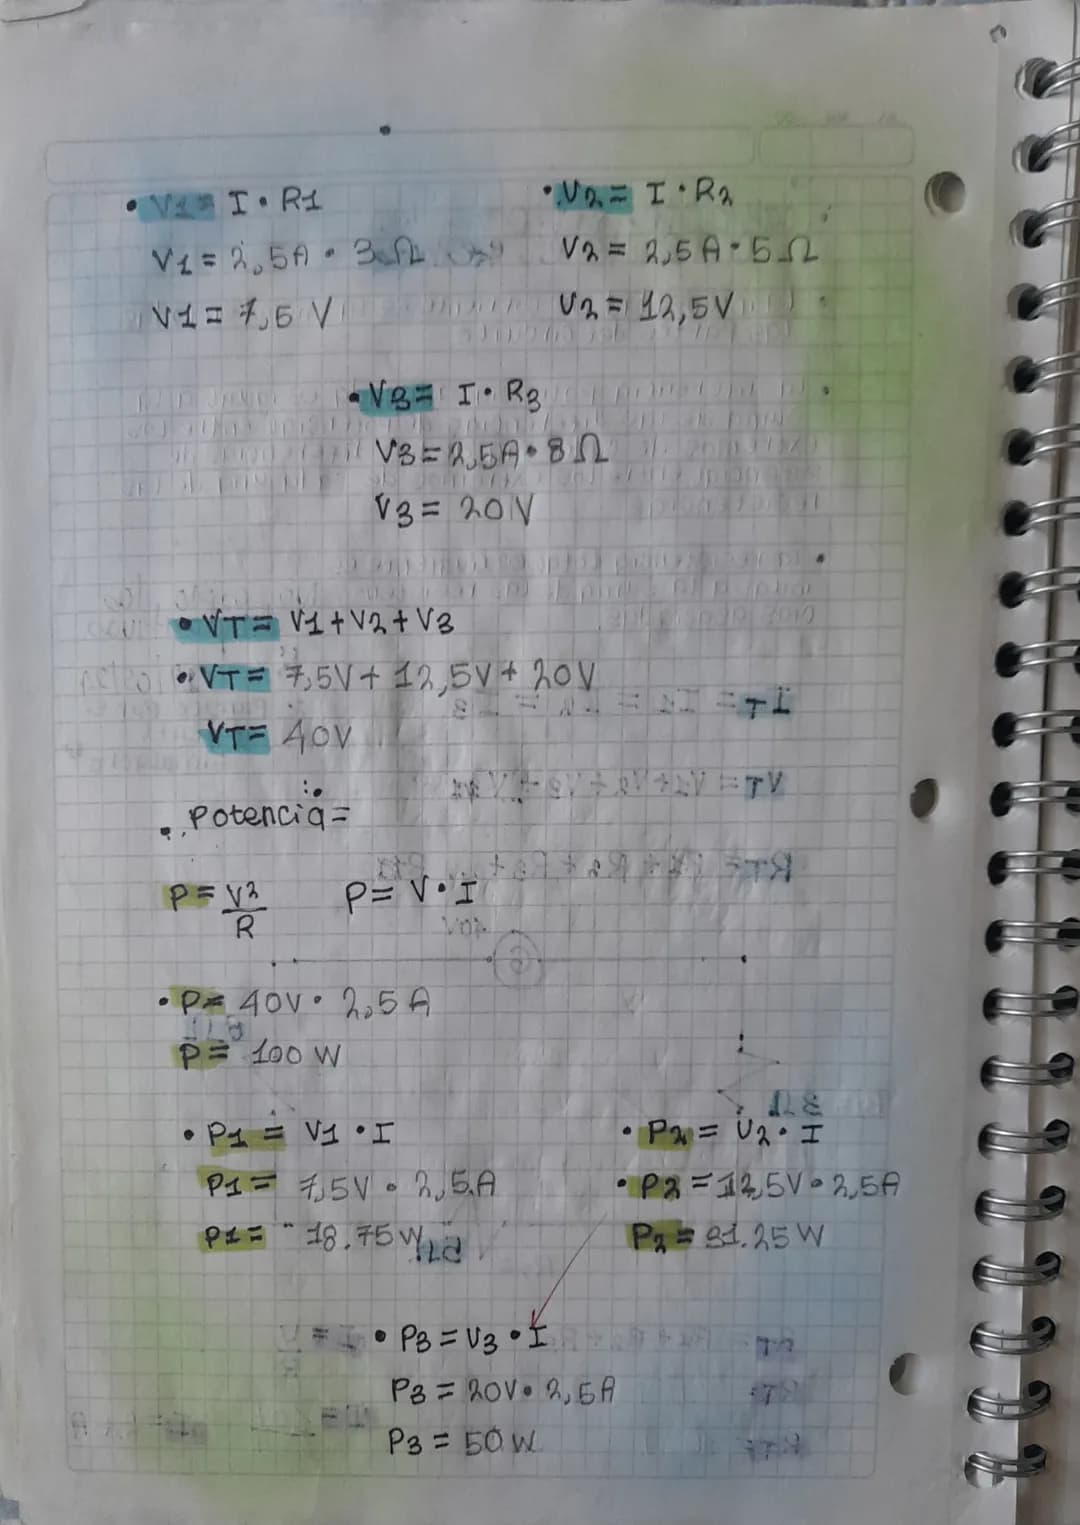 • V1= I • R1
V1 = 2,5A • 3Ω
V1 = 7,5 V
• V2= I • R2
V2 = 2,5A • 5Ω
V2 = 12,5V
• V3= I • R3
V3 = 2,5A • 8Ω
V3 = 20V
• VT= V1+V2+V3
• VT= 7,5V+ 12,5V+ 20V
VT= 40V
• Potencia=
P= V²/R P= V•I
• P= 40V • 2,5A
P= 100 W
• P1 = V1 • I
P1= 7,5V • 2,5A
P1= 18.75W
• P2 = V2 • I
• P2 = 12,5V • 2,5A
P2 = 31.25W
• P3 = V3 • I
P3 = 20V • 2,5A
P3 = 50W